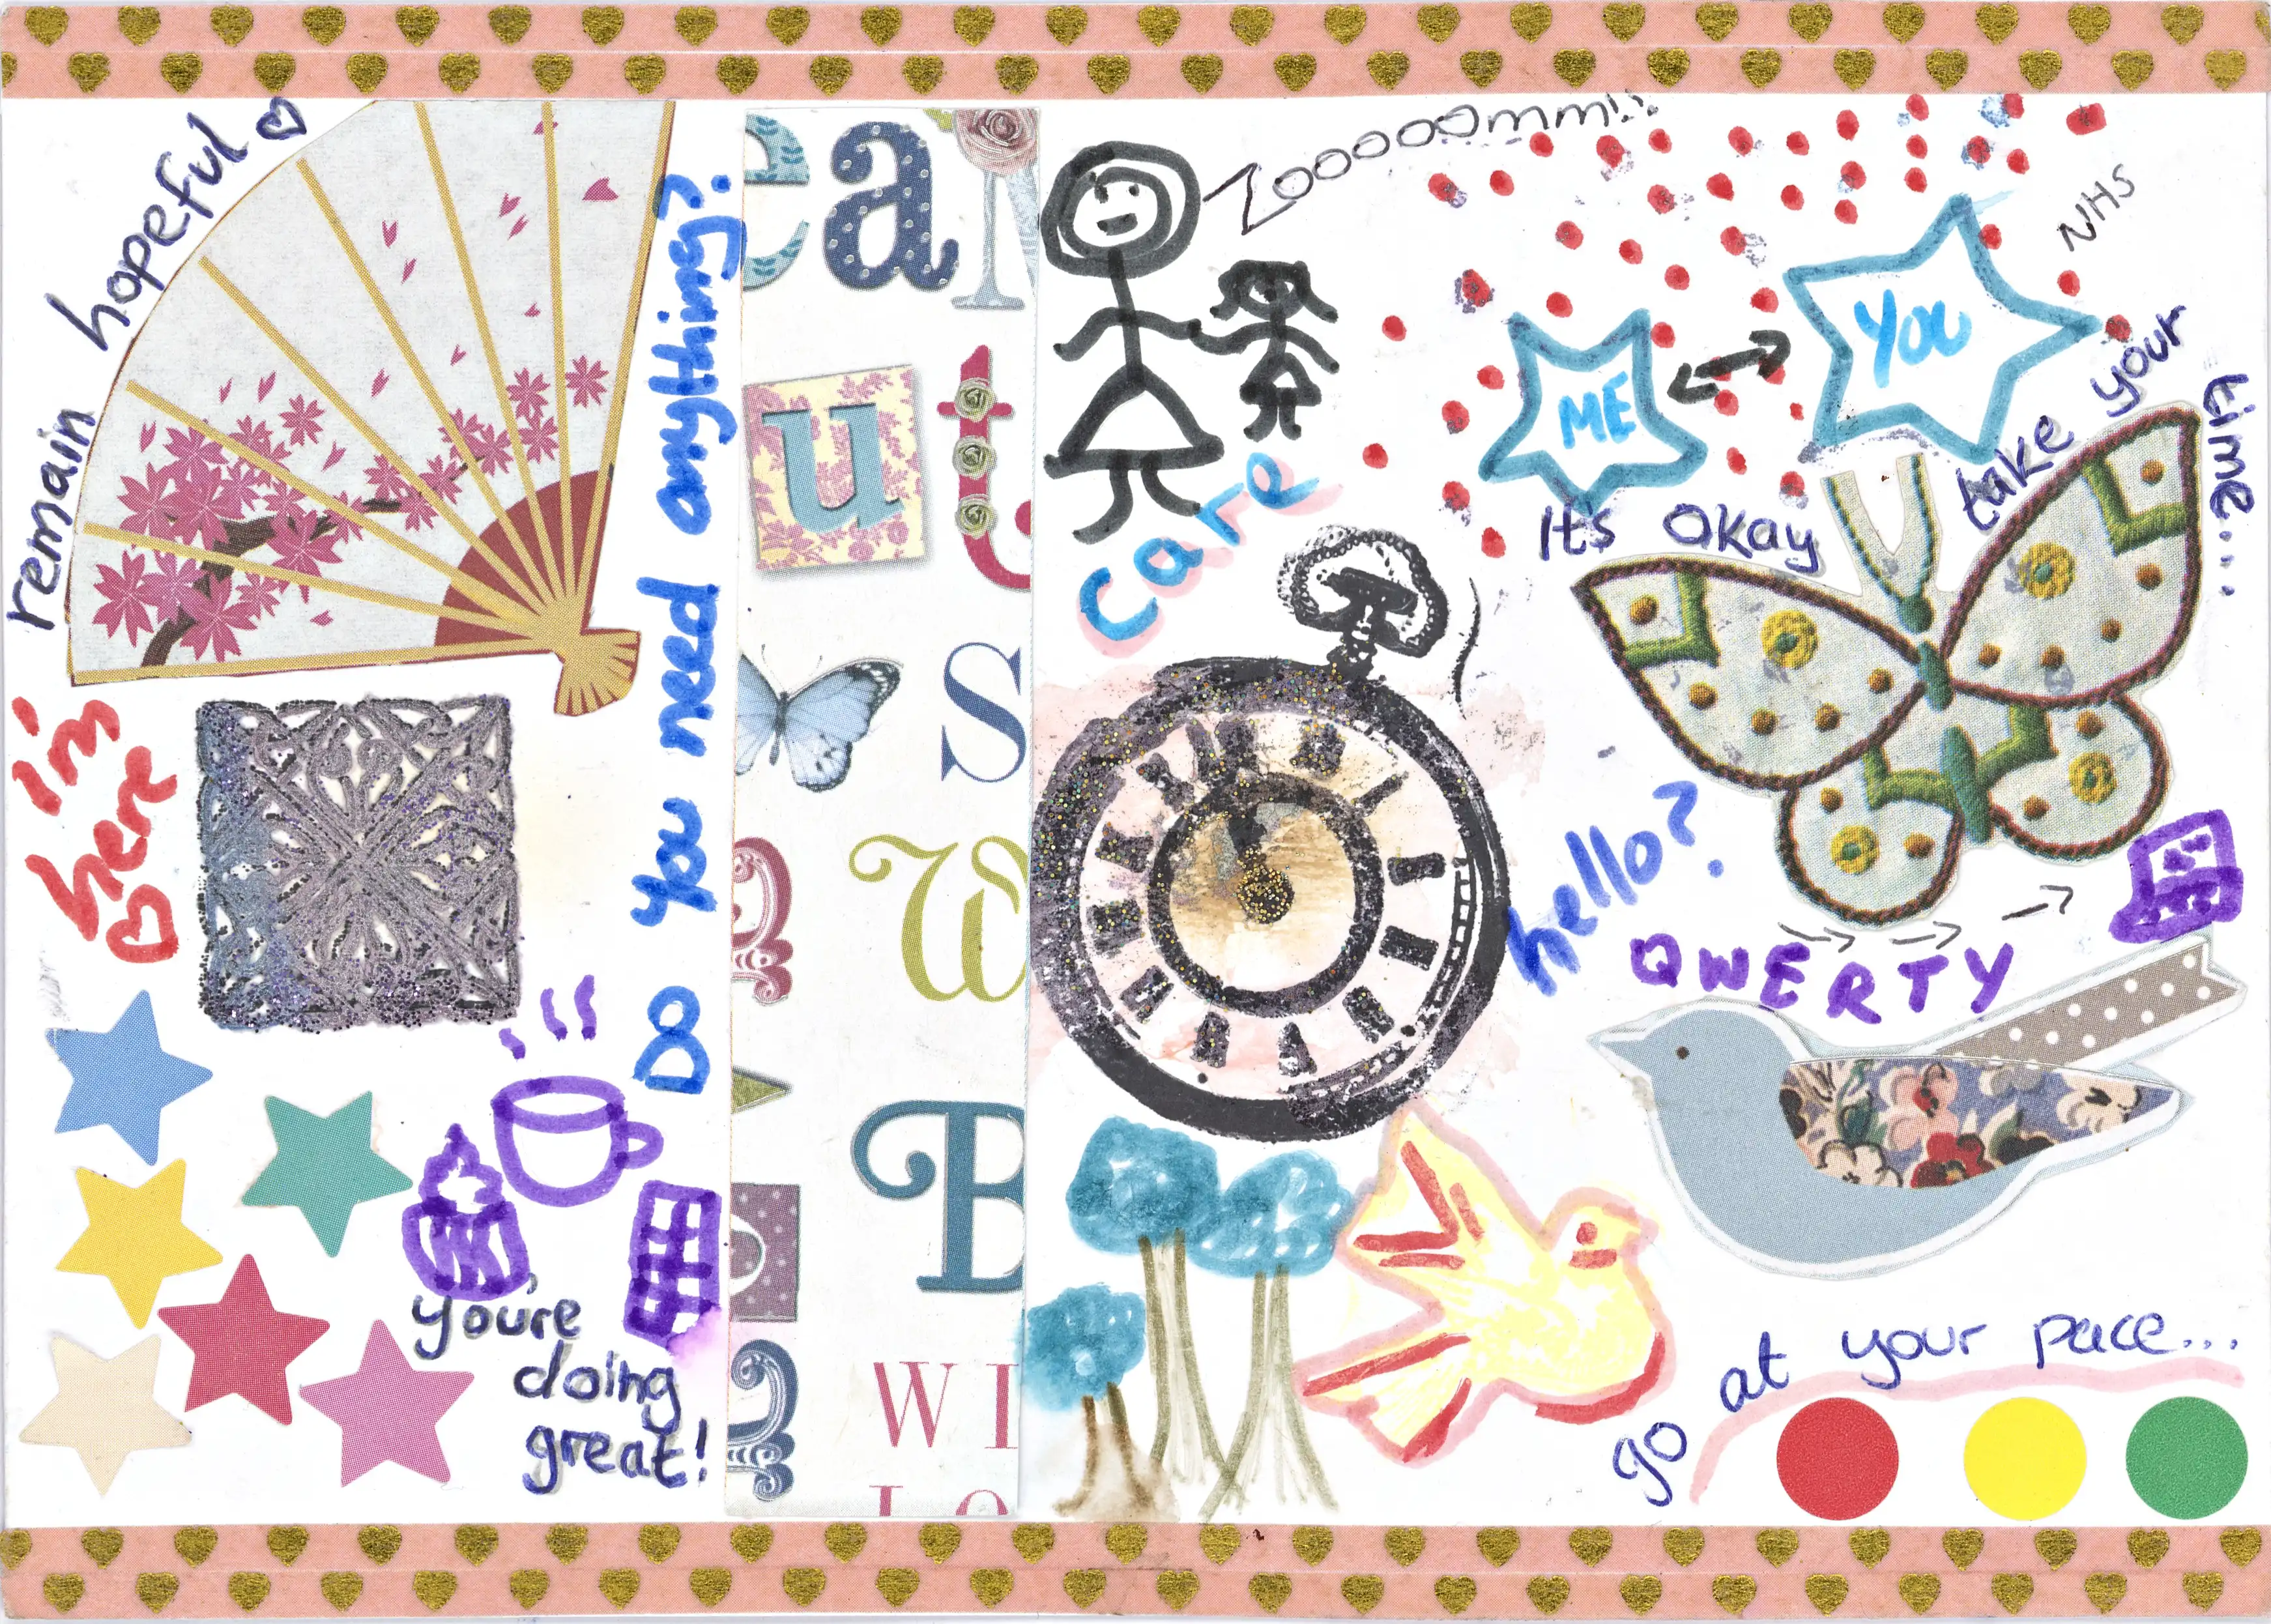 remain hopeful
Do you need anything?
i'm
here
you're
doing
great!
ea
u t
S
W
B
WI
Zoooooommm!!
care
ME
YOU
NHS
Its okay take your time...
hello?
QWERTY
go at your pace...